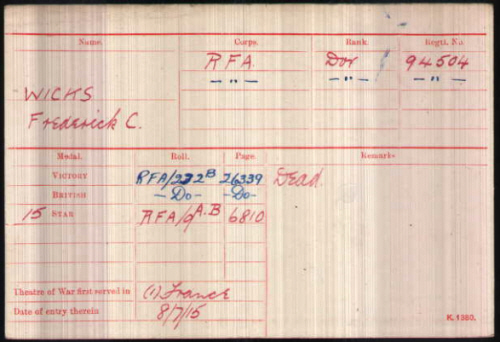 Name. Corps. Rank. Regtl. No.
R F A. Dvr 94504
— " — — " — — " —
WICKS
Frederick C.
Medal. Roll. Page. Remarks
VICTORY RFA/222B 26339 Dead
BRITISH — Do — — Do —
15 STAR RFA/9A.B 6810
Theatre of War first served in (1) France
Date of entry therein 8/7/15
K. 1380.